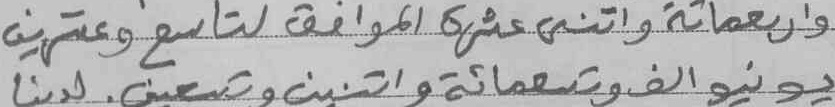 واربعمائة واتنى عشرة الموافق لتاسع وعشرين
يونيو الف وتسعمائة واتنين وتسعين. لدينا